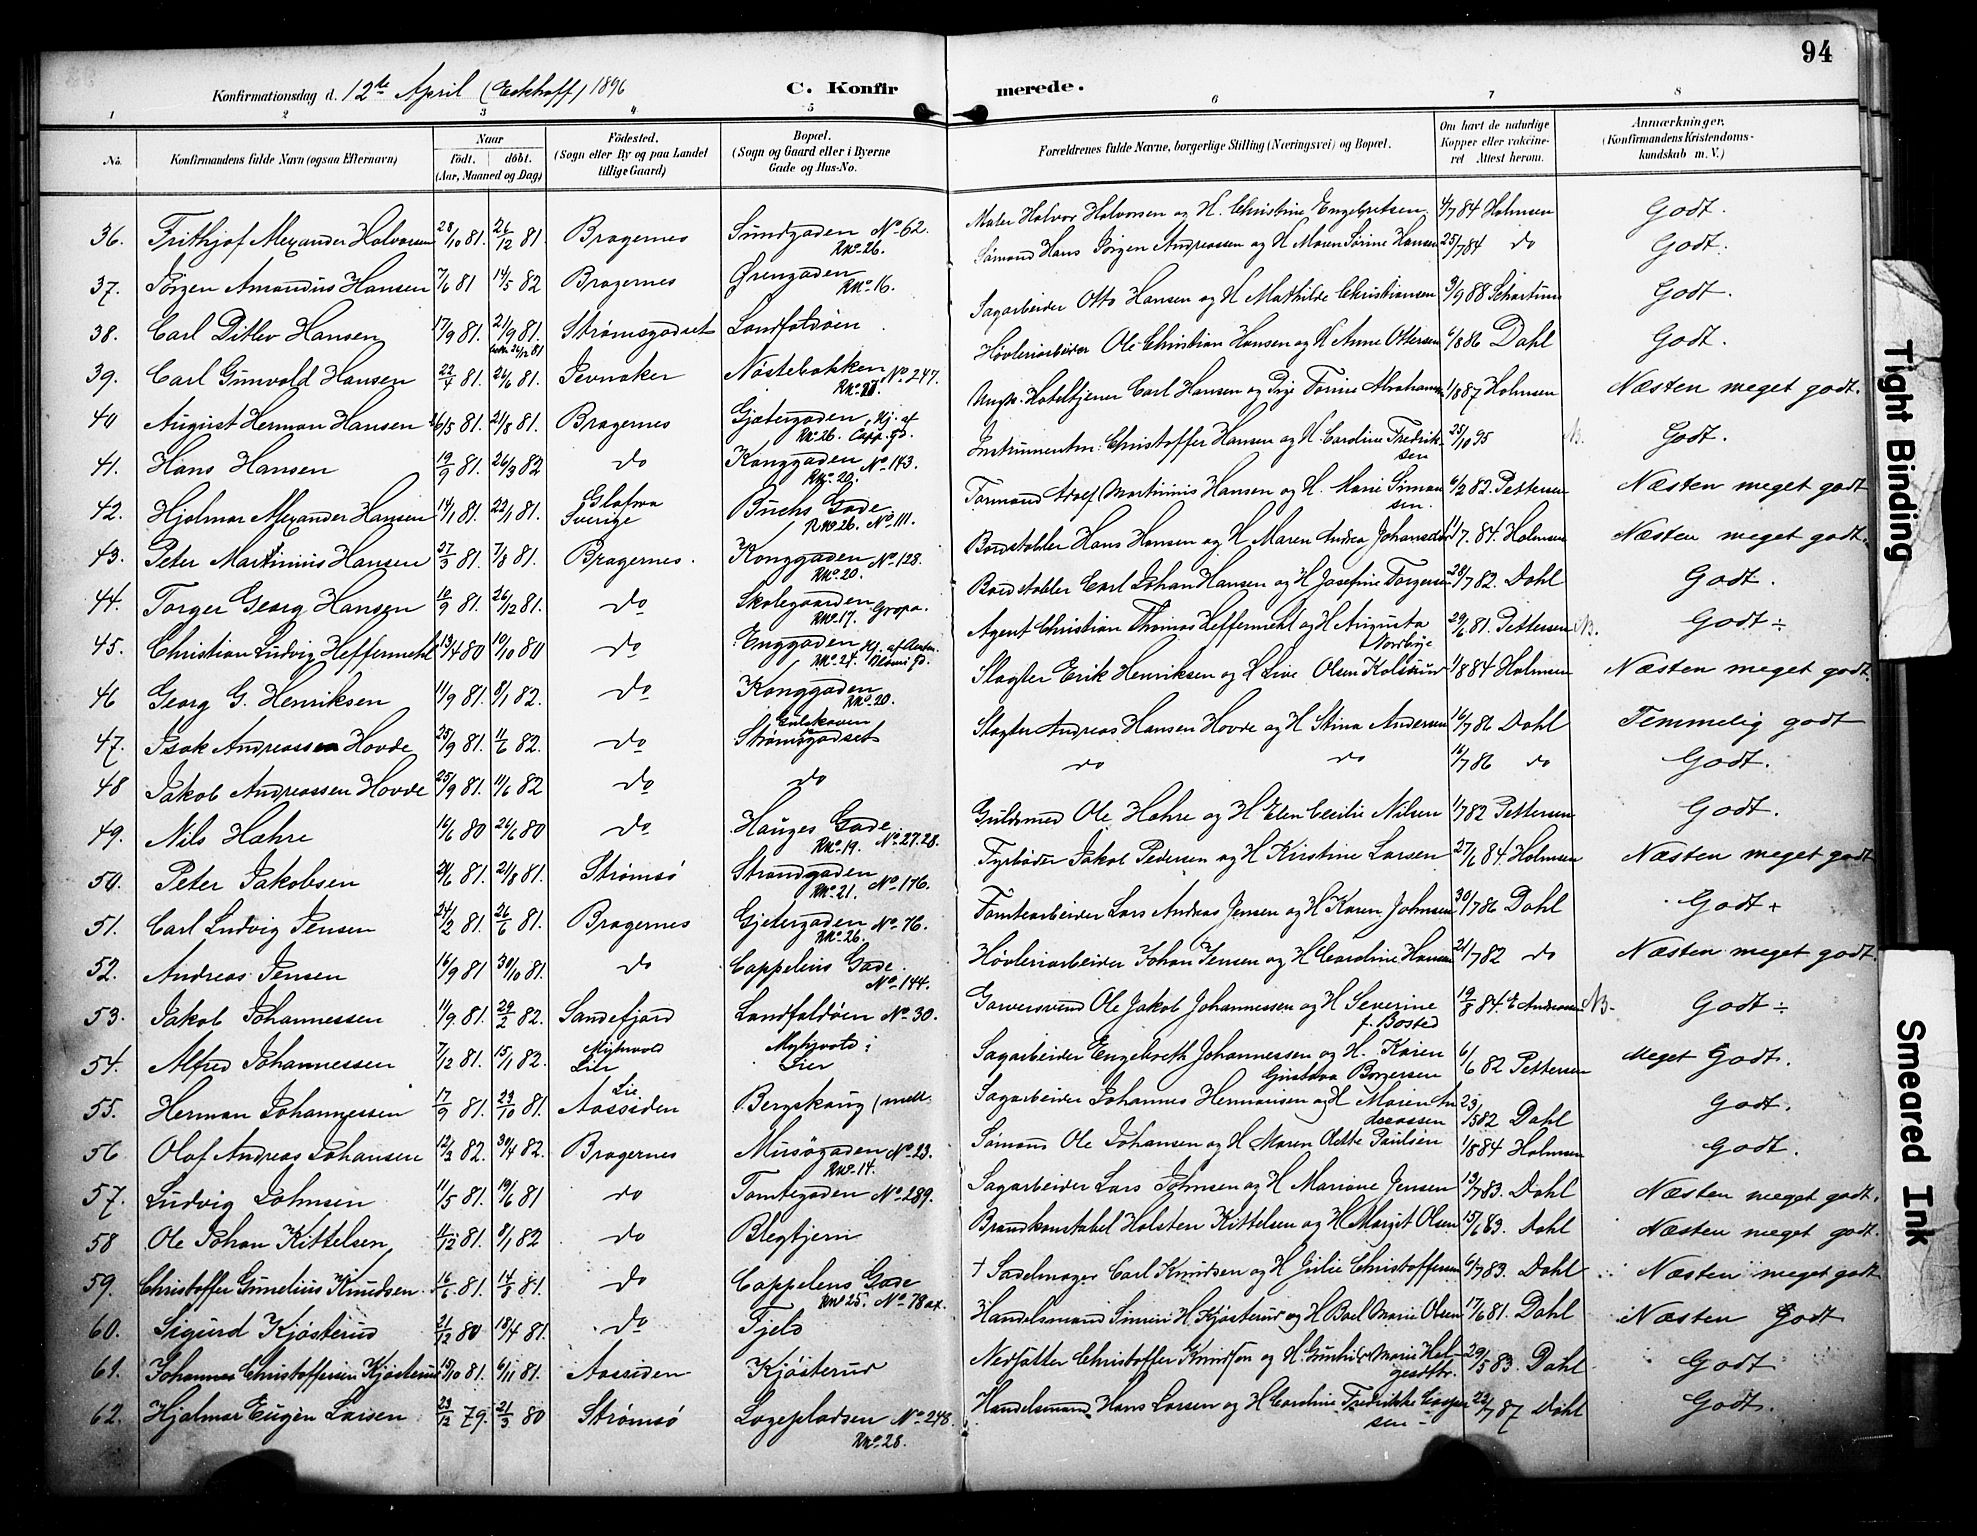 94
Konfirmationsdag d. 12te April (Eckhoff) 1896 C. Konfirmerede.
1 2 3 4 5 6 7 8
No. Konfirmandens fulde Navn (ogsaa Efternavn) Naar født. døbt. (Aar, Maaned og Dag) Födested. (Sogn eller By og paa Landet tillige Gaard) Bopæl. (Sogn og Gaard eller i Byerne Gade og Hus-No. Forældrenes fulde Navne, borgerlige Stilling (Næringsvei) og Bopæl. Om havt de naturlige Kopper eller vakcineret Attest herom. Anmærkninger. (Konfirmandens Kristendomskundskab m. V.)
36. Frithjof Alexander Halvorsen 28/10 81. 26/12 81. Bragernes Sundgaden No 62. R.No. 26. Maler Halvor Halvorsen og H. Christine Engebretsen 4/7 84 Holmsen Godt.
37. Jörgen Amandus Hansen 7/6 81 14/5 82 Bragernes Örengaden R.No. 16. Sömand Hans Jörgen Andreassen og H Maren Sörine Hansen 25/7 84 do Godt.
38. Carl Ditlev Hansen 17/9 81. 21/9 81. Strömsgodset Landfaldöen Sagarbeider Otto Hansen og H Mathilde Christiansen 3/9 88 Schartum Godt.
39. Carl Gunvald Hansen 22/4 81. 26/6 81. Jevnaker Nöstebakken No. 247. Hövleriarbeider Ole Christian Hansen og H Anne Ottersen 6/8 86 Dahl Godt.
40 August Herman Hansen 26/5 81. 21/8 81. Bragernes Gjetergaden Hj. af Capp. gd. R.No. 26. Ungk. Hoteltjener Carl Hansen og Pige Torine Abrahamsen 1/8 87 Holmsen Næsten meget godt.
41. Hans Hansen 19/9 81. 26/3 82 do Konggaden No. 143. R.No. 20. Instrumentm: Christoffer Hansen og H Caroline Fredriksen 25/10 95 N. Godt.
42. Hjalmar Alexander Hansen 14/1 81. 23/1 81. Glafva Sverige Buchs Gade R.No 26. No. 111. Formand Adolf Martinius Hansen og H. Marie Simonsen 6/2 82. Pettersen Næsten meget godt
43. Peter Martinius Hansen 27/3 81. 7/8 81. Bragernes. Konggaden No. 128. R.No. 20. Bordstabler Hans Hansen og H Maren Andrea Johansdtr 11/7. 84. Holmsen Næsten meget godt.
44. Torger Georg Hansen 10/9 81. 26/12 81. do Skolegaarden Gropa. R.No. 17. Bordstabler Carl Johan Hansen og H Josefine Torgersen 28/7 82. Dahl Godt.
45. Christian Ludvig Heffermehl 13/4 80 10/10 80 do Enggaden R.No. 24. Agent Christian Thomas Heffermehl og H Augusta Nordbye 29/6 81. Pettersen N. Godt ÷
46 Georg G. Henriksen 11/9 81. 8/1 82. do Konggaden R.No. 20. Slagter Erik Henriksen og H Live Olsen Kolsrud 1/8 84 Holmsen Næsten meget godt.
47. Isak Andreassen Hovde 25/9 81. 11/6 82. do Gulskoven Strömsgodset Slagter Andreas Hansen Hovde og H Stina Andersen 16/7 86 Dahl Temmelig godt
48 Jakob Andreassen Hovde 25/9 81. 11/6 82 do do do do 16/7 86 do Godt.
49. Nils Hæhre 16/6 80 26/6 80 do Hauges Gade R.No. 19. No. 27.28. Guldsmed Ole Hæhre og H Elen Cecilie Nilsen 1/7 82 Pettersen Godt.
50. Peter Jakobsen 24/6 81. 21/8 81. Strömsö Strandgaden R.No. 21. No. 176. Fyrböder Jakob Pedersen og H Kristine Larsen 27/6 84. Holmsen Næsten meget godt
51. Carl Ludvig Jensen 24/2 81. 26/6 81. Bragernes Gjetergaden No. 76. R.No. 26. Tomtearbeider Lars Andreas Jensen og H Karen Johnsen 30/7 86 Dahl Godt +
52. Andreas Jensen 16/9 81 30/10 81. do Cappelens Gade. No. 144. Hövleriarbeider Johan Jensen og H Caroline Hansen 21/7 82 do Næsten meget godt.
53. Jakob Johannessen 11/9. 81. 29/2 82. Sandefjord Landfaldöen No. 30. Garversvend Ole Jakob Johannessen og H Severine f. Bosted 19/8 84. E Andreasen N. Godt ÷
54. Alfred Johannessen 7/12 81. 15/1 82. Myhrvold Lier Myhrvold i Lier Sagarbeider Engebreth Johannessen og H. Karen Gustava Borgersen 6/6 82 Pettersen Meget Godt.
55. Herman Johannessen 17/9 81. 23/10 81. Lie. Aassiden Bergskaug (mell. Sagarbeider Johannes Hermansen og H Maren Andreassen 23/5 82 Dahl Godt.
56 Olaf Andreas Johansen 12/3 82. 30/4 82. Bragernes Musögaden No. 23. R.No. 14. Sömand Ole Johansen og H Maren Olette Paulsen 1/8 84 Holmsen Godt.
57. Ludvig Johnsen 11/5 81. 19/6 81 do Tomtegaden No. 289. Sagarbeider Lars Johnsen og H Mariane Jensen 13/7 83. Dahl Næsten meget godt.
58 Ole Johan Kittelsen 4/12 81. 8/1 82 do Blegtjern Brandkonstabel Halsten Kittelsen og H Margit Olsen 15/6 83. Dahl Næsten meget godt.
59. Christoffer Gunelius Knudsen 16/6 81. 14/8 81. do Cappelens Gade R.No 25. No. 78 ax. † Sadelmager Carl Knudsen og H Julie Christoffersen 6/7 83. Dahl Næsten meget godt
60. Sigurd Kjösterud 21/12 80 18/4 81. do Fjeld Handelsmand Simen H. Kjösterud og H Boel Marie Olsen 17/6 81. Dahl Næsten Godt
61. Johannes Christoffersen Kjösterud 15/10 81. 6/11 81. Aassiden Kjösterud Nedsätter Christoffer Knudsen og H. Gunhild Marie Helgesdtr. 29/5 83. Dahl Godt
62. Hjalmar Eugen Larsen 23/12 79. 21/3 80 Strömsö Lögepladsen No. 248. R.No. 28. Handelsmand Hans Larsen og H Caroline Fredrikke Caspersen 22/7 87 Dahl Godt.
Tight Binding
Smeared Ink